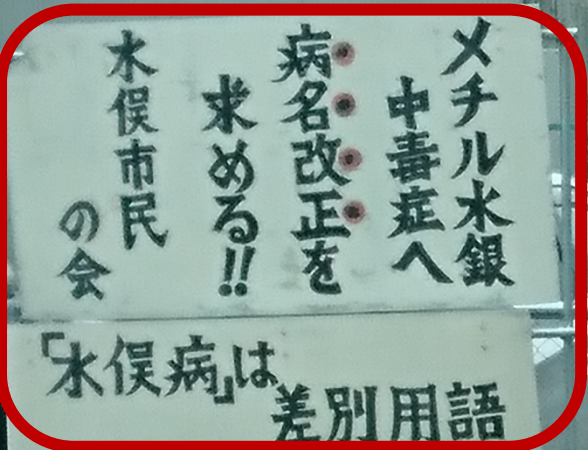 メチル水銀
中毒症へ
病名改正を
求める!!
水俣市民
の会
「水俣病」は
差別用語